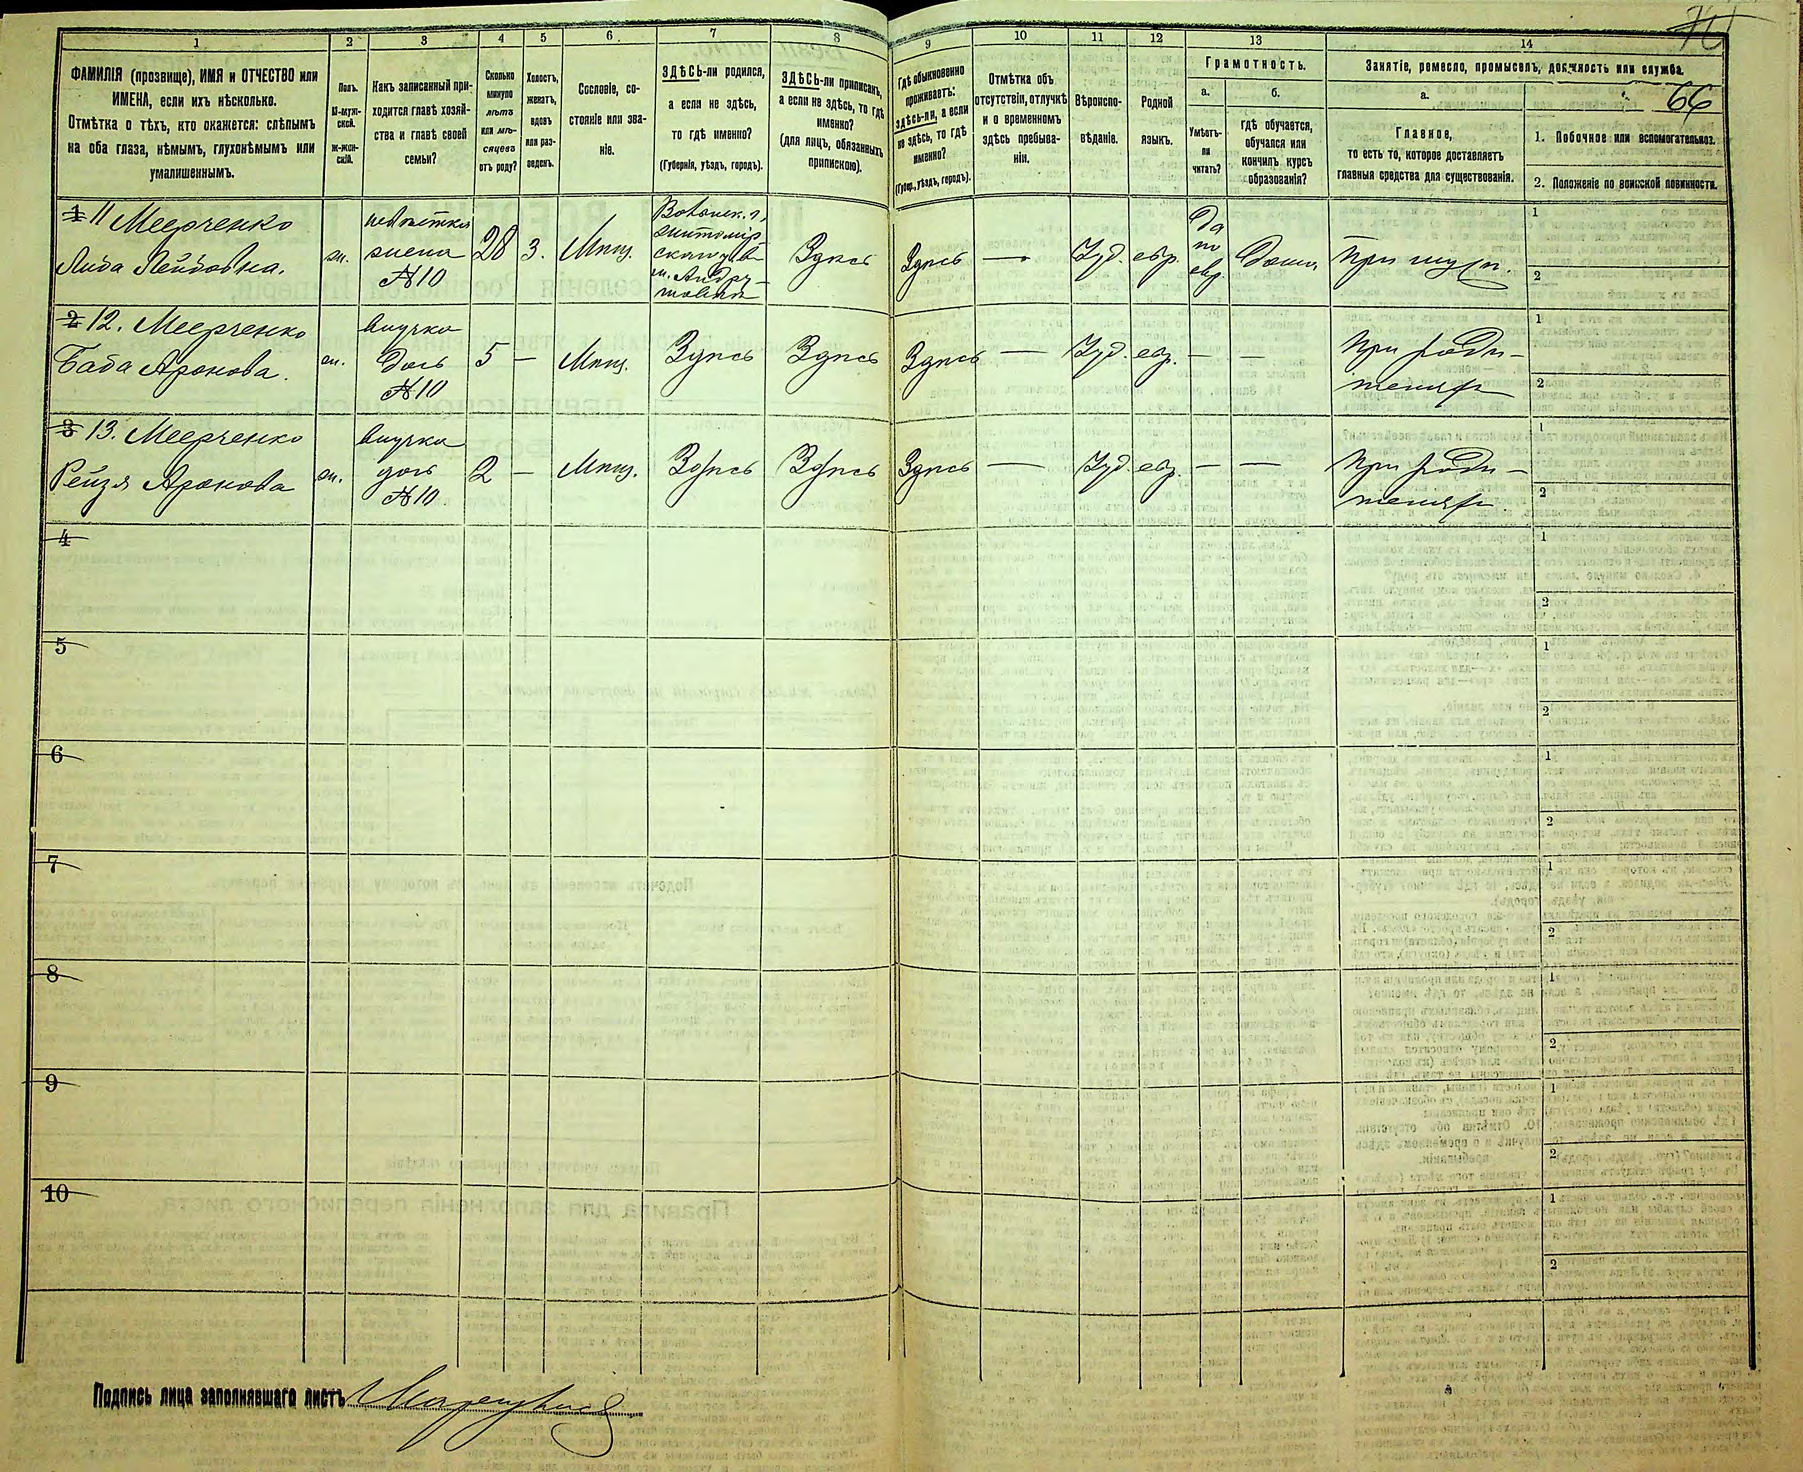 1 2 3 4 5 6 7 8 9 10 11 12 13 14
66
ФАМИЛІЯ (прозвище), ИМЯ и ОТЧЕСТВО или
ИМЕНА, если ихъ нѣсколько.
Отмѣтка о тѣхъ, кто окажется: слѣпымъ
на оба глаза, нѣмымъ, глухонѣмымъ или
умалишеннымъ.
Полъ.
М-муж-
ской.
ж-жен-
скій.
Какъ записанный при-
ходится главѣ хозяй-
ства и главѣ своей
семьи?
Сколько
минуло
лѣтъ
или мѣ-
сяцевъ
отъ роду?
Холостъ,
женатъ,
вдовъ
или раз-
веденъ.
Сословіе, со-
стояніе или зва-
ніе.
ЗДѢСЬ-ли родился,
а если не здѣсь,
то гдѣ именно?
(Губернія, уѣздъ, городъ).
ЗДѢСЬ-ли приписанъ,
а если не здѣсь, то гдѣ
именно?
(для лицъ, обязанныхъ
припискою).
Гдѣ обыкновенно
проживаетъ:
здѣсь-ли, а если
не здѣсь, то гдѣ
именно?
(Губер., уѣздъ, городъ).
Отмѣтка объ
отсутствіи, отлучкѣ
и о временномъ
здѣсь пребыва-
ніи.
Вѣроиспо-
вѣданіе.
Родной
языкъ.
Грамотность.
а.
Умѣетъ-
ли
читать?
б.
гдѣ обучается,
обучался или
кончилъ курсъ
образованія?
Занятіе, ремесло, промыселъ, должность или служба.
а.
Главное,
то есть то, которое доставляетъ
главныя средства для существованія.
1. Побочное или вспомогательное.
2. Положеніе по воинской повинности.
1 11 Меерченко
Либа Лейбовна.
ж.
невѣстка
жена
№10
28
3.
Мѣщ.
Волынск. г.
житомір-
скаго уѣз
м. Андру-
Здѣсь
Здѣсь
—
Іуд.
евр.
Да
по
евр.
Дома
При мужѣ.
1
2
2 12. Меерченко
Баба Аронова.
ж.
внучка
дочь
№10
5
—
Мѣщ.
Здѣсь
Здѣсь
Здѣсь
—
Іуд.
евр.
—
—
При роди-
теляхъ
1
2
3 13. Меерченко
Рейзя Аронова
ж.
внучка
дочь
№10.
2
—
Мѣщ.
Здѣсь
Здѣсь
Здѣсь
—
Іуд.
евр.
—
—
При роди-
теляхъ
1
2
4
1
2
5
1
2
6
1
2
7
1
2
8
1
2
9
1
2
10
1
2
Подпись лица заполнявшаго листъ